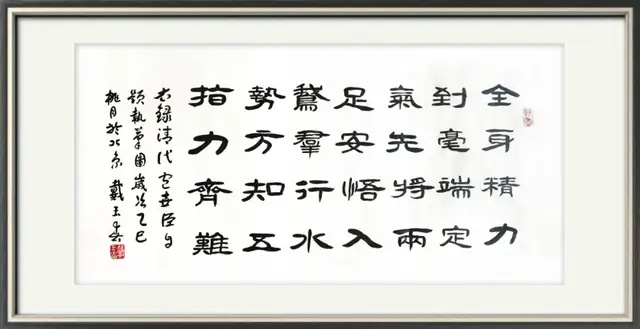 全身精力
到毫端定
氣先將兩
足安悟入
鵞羣行水
勢方知五
指力齊難
右錄清代包世臣自
題執筆圖歲次乙巳
桃月於北京戴玉